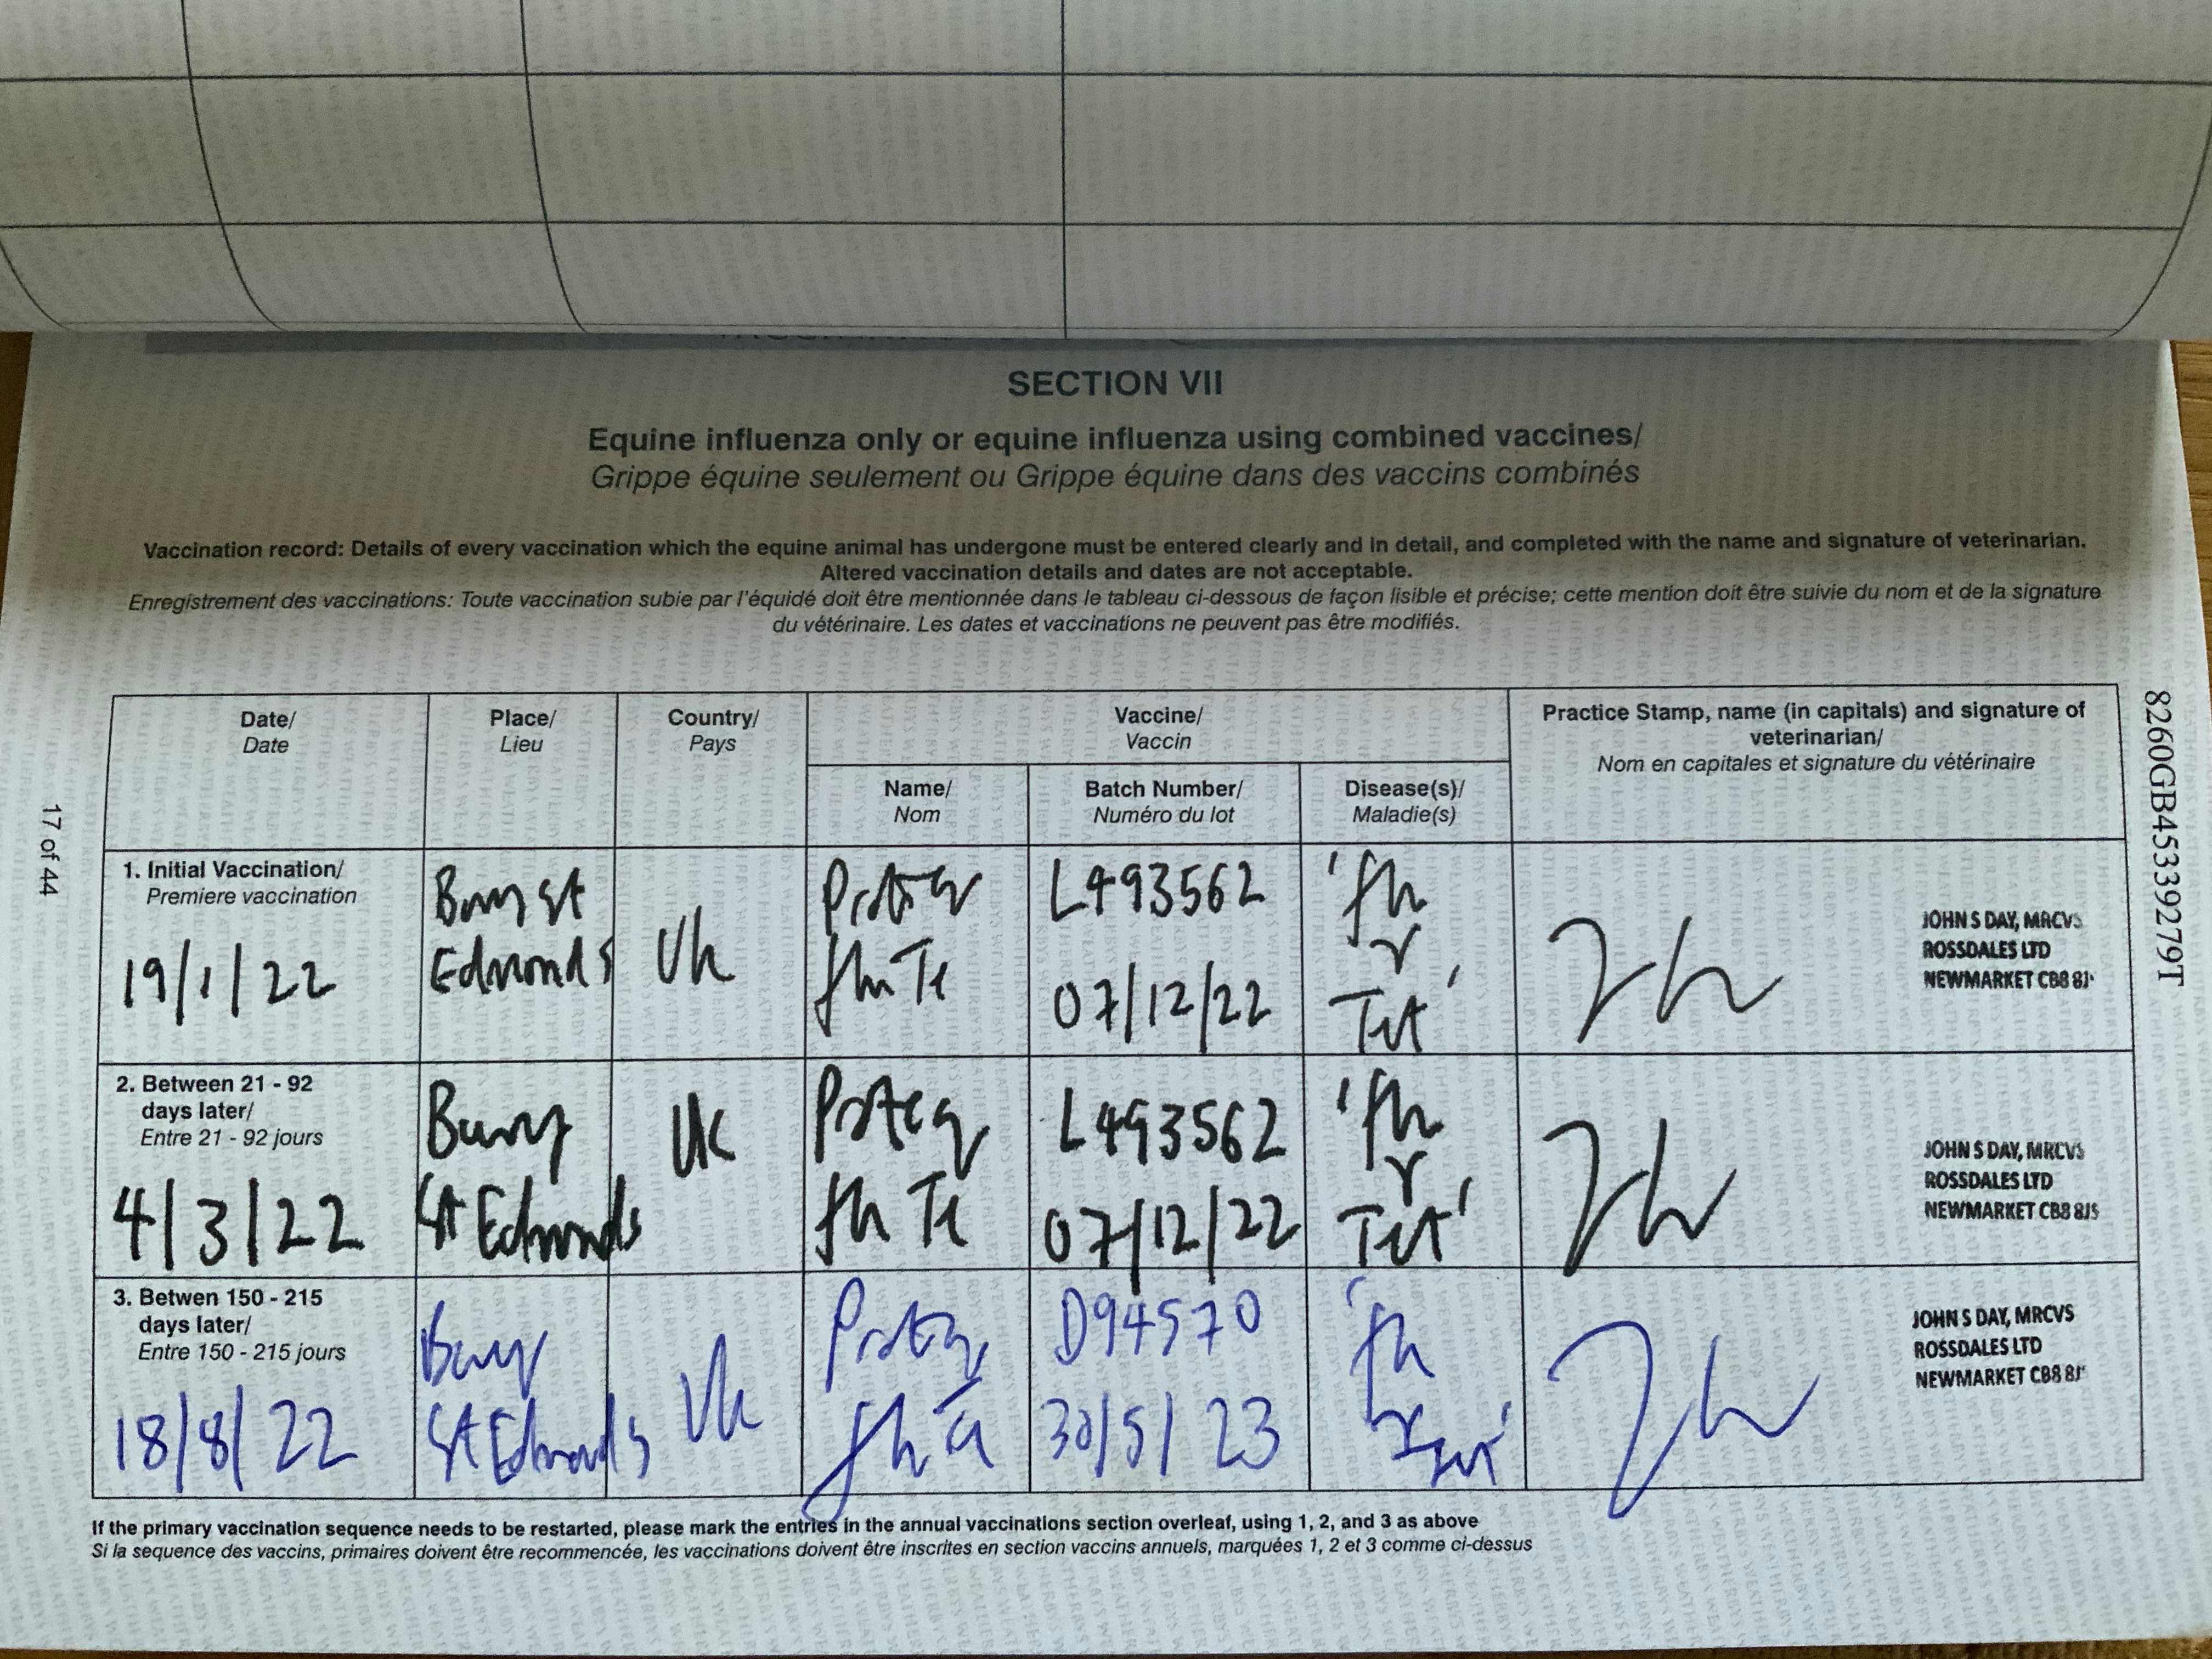 SECTION VII
Equine influenza only or equine influenza using combined vaccines/
Grippe équine seulement ou Grippe équine dans des vaccins combinés
Vaccination record: Details of every vaccination which the equine animal has undergone must be entered clearly and in detail, and completed with the name and signature of veterinarian.
Altered vaccination details and dates are not acceptable.
Enregistrement des vaccinations: Toute vaccination subie par l'équidé doit être mentionnée dans le tableau ci-dessous de façon lisible et précise; cette mention doit être suivie du nom et de la signature
du vétérinaire. Les dates et vaccinations ne peuvent pas être modifiés.
Date/
Date
Place/
Lieu
Country/
Pays
Vaccine/
Vaccin
Name/
Nom
Batch Number/
Numéro du lot
Disease(s)/
Maladie(s)
Practice Stamp, name (in capitals) and signature of
veterinarian/
Nom en capitales et signature du vétérinaire
1. Initial Vaccination/
Premiere vaccination
19/1/22
Bury St
Edmonds
Uk
Proteq
flu Te
L493562
07/12/22
'flu
Tet'
JOHN S DAY, MRCVS
ROSSDALES LTD
NEWMARKET CB8 8J
2. Between 21 - 92
days later/
Entre 21 - 92 jours
4/3/22
Bury
St Edmonds
UK
Proteq
flu Te
L493562
07/12/22
'flu
Tet'
JOHN S DAY, MRCVS
ROSSDALES LTD
NEWMARKET CB8 8JS
3. Betwen 150 - 215
days later/
Entre 150 - 215 jours
18/8/22
Bury
St Edmonds
Uk
Proteq
flu Te
D94570
30/5/23
'flu
JOHN S DAY, MRCVS
ROSSDALES LTD
NEWMARKET CB8 8J
If the primary vaccination sequence needs to be restarted, please mark the entries in the annual vaccinations section overleaf, using 1, 2, and 3 as above
Si la sequence des vaccins, primaires doivent être recommencée, les vaccinations doivent être inscrites en section vaccins annuels, marquées 1, 2 et 3 comme ci-dessus
17 of 44
8260GB45339279T